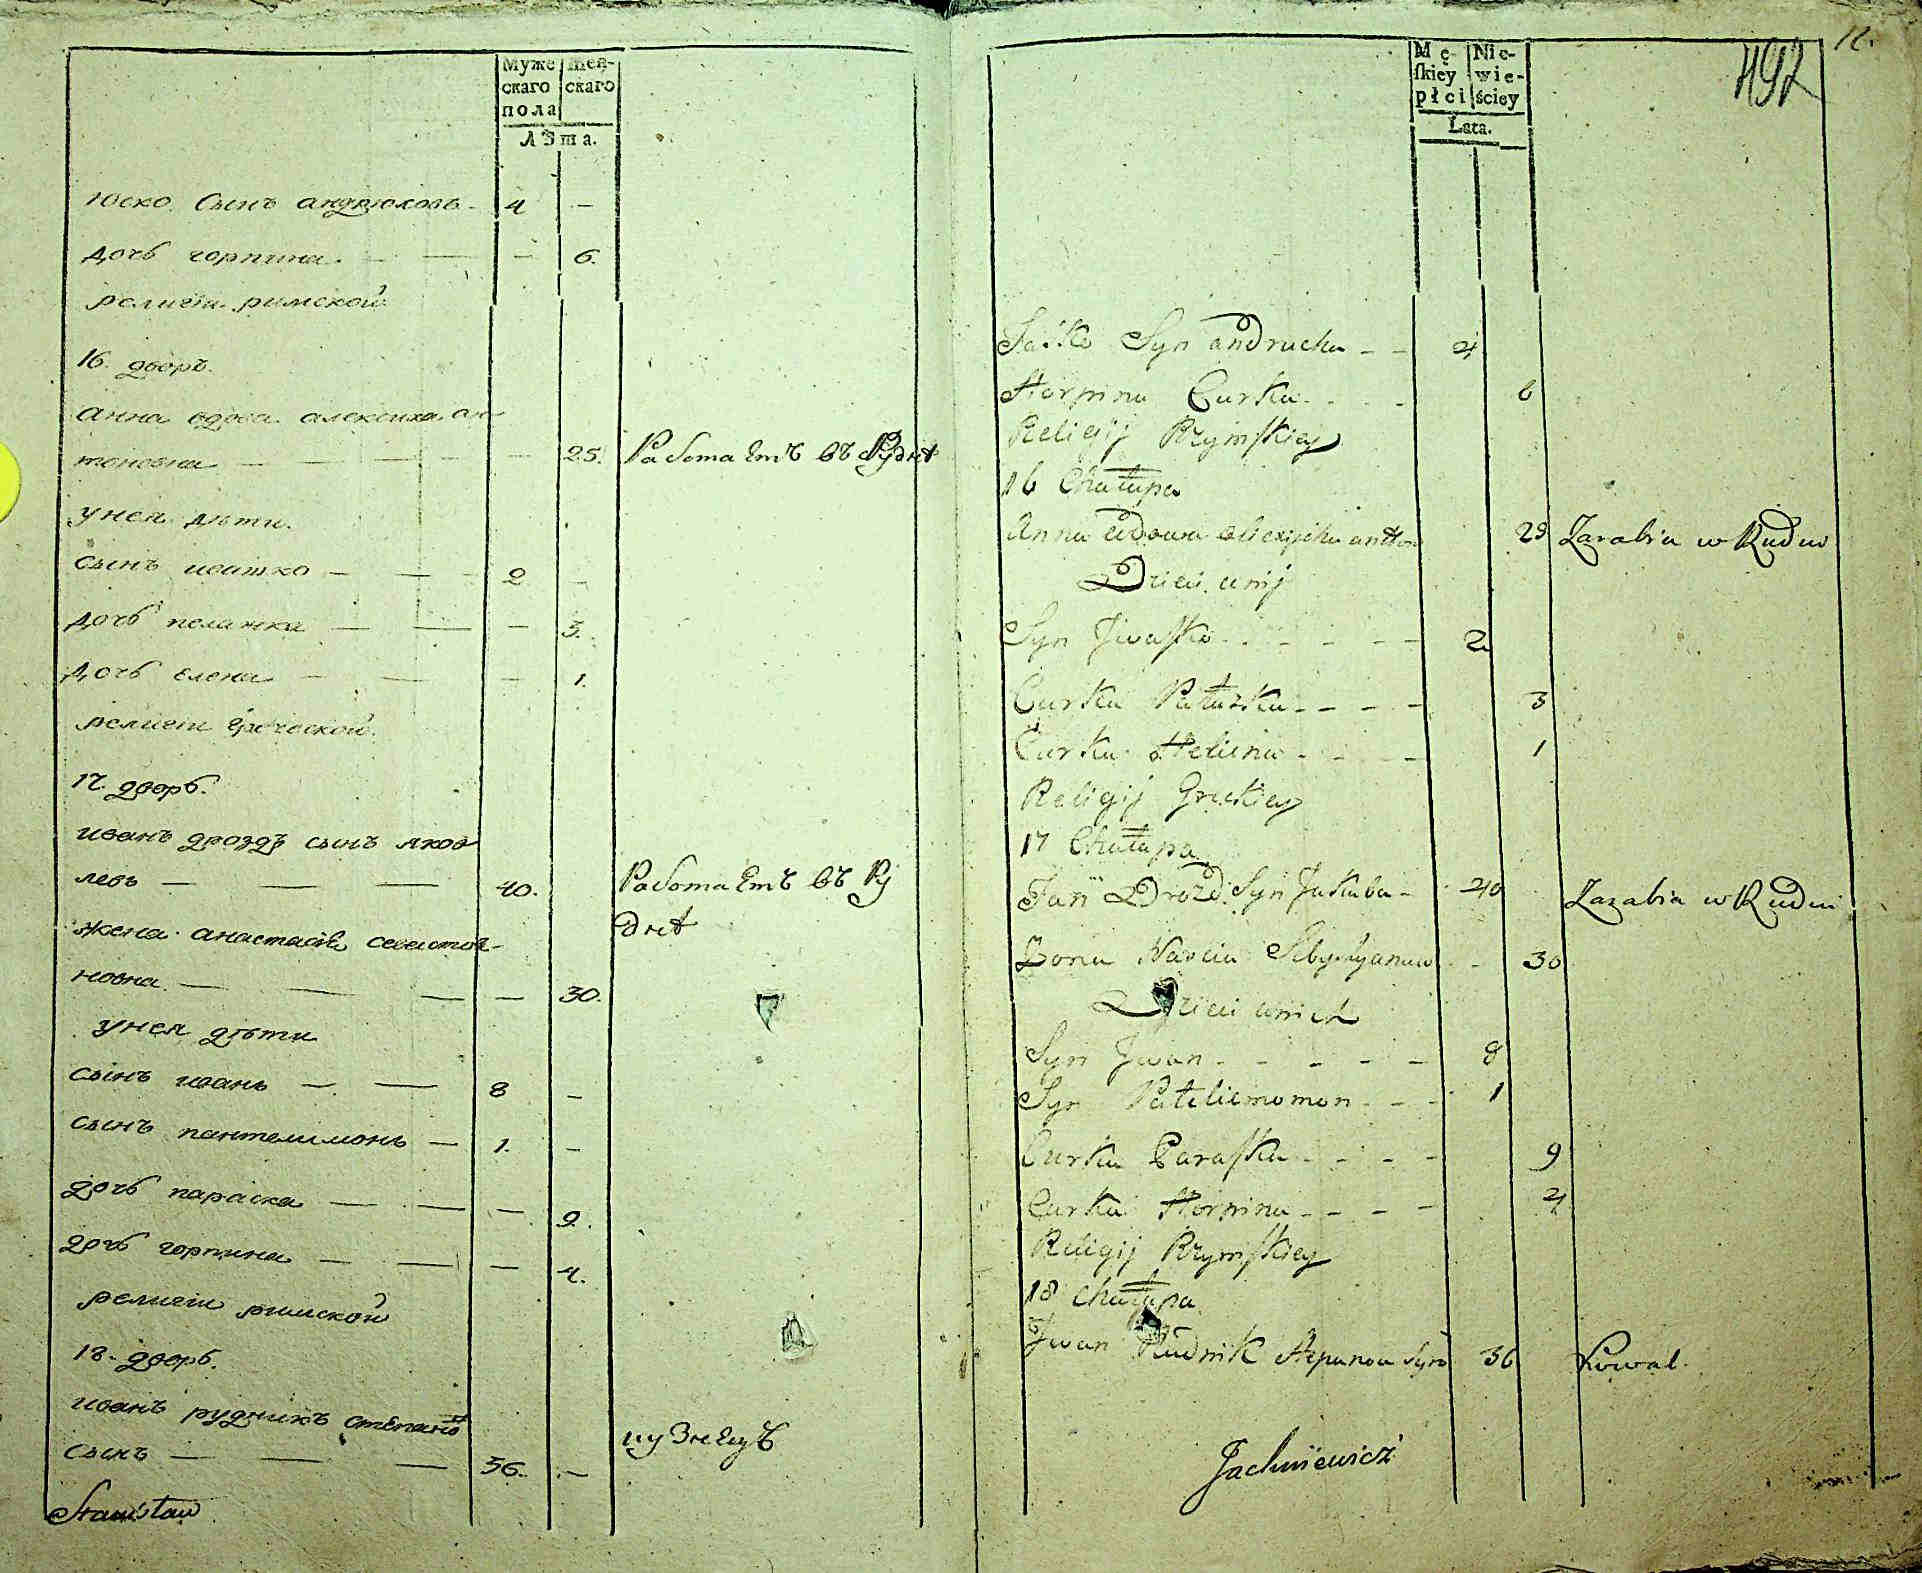 Муже
скаго
пола
Жен-
скаго
Лѣта.
Юско Сынъ андрюховъ - 4 -
дочь горпина. - - - 6.
религіи римской
16. дворъ.
анна вдова алексиха ан
тоновна - - - - 25. Работаетъ въ Руднѣ
у нея дѣти.
сынъ ивашко - - - 2 -
дочь пелашка - - - 3.
дочь елена - - - 1.
религіи греческой.
17. дворъ.
иванъ дроздъ сынъ яков
левъ - - - 40. Работаетъ въ Ру
днѣ
жена анастасія севастья-
новна. - - - - 30.
у нея дѣти
сынъ иванъ - - 8 -
сынъ пантелимонъ - 1. -
дочь параска - - - 9.
дочь горпина - - - 4.
религіи римской
18. дворъ.
иванъ рудникъ степановъ
сынъ - - - 36. - кузнецъ
Stanisław
12.
492
Mę-
skiey
płci
Nie-
wie-
ściey
Lata.
Jaśko Syn andrucha - - 4
Horpina Curka - - - 6
Religij Rzymskiey
16 Chałupa
Anna Wdowa Alexijcha anton 25 Zarabia w Rudni
Dzieci u nij
Syn Iwaśko - - - - - 2
Curka Pałażka - - - - 3
Curka Heliena - - - - 1
Religij Grickiey
17 Chałupa
Jan Drozd Syn Jakuba - 40 Zarabia w Rudni
Żona Naścia Sebystyanow - - 30
Dzieci u nich
Syn Jwan - - - - - 8
Syn Pateliemomon - - - 1
Curka Paraska - - - - 9
Curka Horpina - - - - 4
Religij Rzymskiey
18 Chałupa
Jwan Rudnik Stepanow Syn 36 Kowal.
Jachniewicz